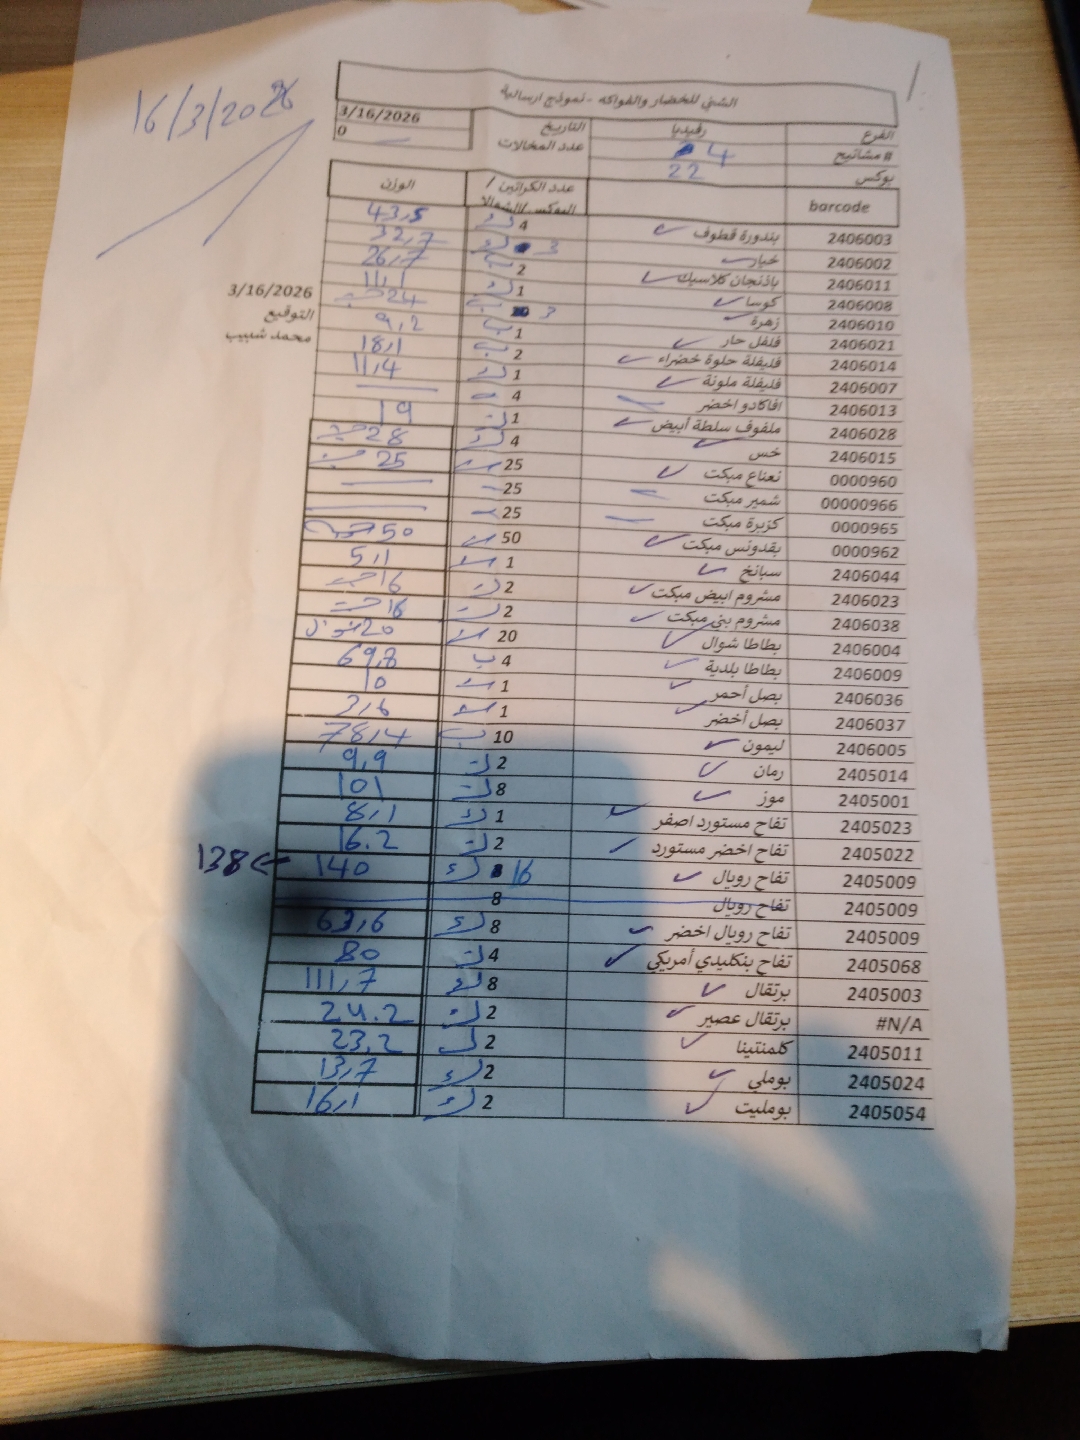 16/3/2026
الشني للخضار والفواكه - نموذج ارسالية
الفرع رفيديا التاريخ 3/16/2026
#مشاتيح 4 عدد المخالات 0
بوكس 22
barcode عدد الكراتين / البوكس/الشوالا الوزن
2406003 بندورة قطوف 4 ك 43,5
2406002 خيار 3 ك 32,7
2406011 باذنجان كلاسيك 2 ب 26,7
2406008 كوسا 1 ك 11,1
2406010 زهرة 3 ب 24 حبة
2406021 فلفل حار 1 ب 9,2
2406014 فليفلة حلوة خضراء 2 ب 18,1
2406007 فليفلة ملونة 1 ك 11,4
2406013 افاكادو اخضر 4
2406028 ملفوف سلطة أبيض 1 19
2406015 خس 4 ك 28 حبة
0000960 نعناع مبكت 25 25
00000966 شمير مبكت 25
0000965 كزبرة مبكت 25
0000962 بقدونس مبكت 50 50 حبة
2406044 سبانخ 1 5,1
2406023 مشروم ابيض مبكت 2 ك 16 حبة
2406038 مشروم بني مبكت 2 ك 16 حبة
2406004 بطاطا شوال 20 20 شوال
2406009 بطاطا بلدية 4 ب 69,8
2406036 بصل أحمر 1 10
2406037 بصل أخضر 1 3,6
2406005 ليمون 10 ب 78,4
2405014 رمان 2 ك 9,9
2405001 موز 8 ك 101
2405023 تفاح مستورد اصفر 1 ك 8,1
2405022 تفاح اخضر مستورد 2 ك 16.2
2405009 تفاح رويال 16 ك 140 138
2405009 تفاح رويال 8
2405009 تفاح رويال اخضر 8 ك 63,6
2405068 تفاح بنكليدي أمريكي 4 ك 80
2405003 برتقال 8 ك 111,7
#N/A برتقال عصير 2 ك 24.2
2405011 كلمنتينا 2 ك 23,2
2405024 بوملي 2 ك 13,7
2405054 بومليت 2 ك 16,1
3/16/2026
التوقيع
محمد شبيب